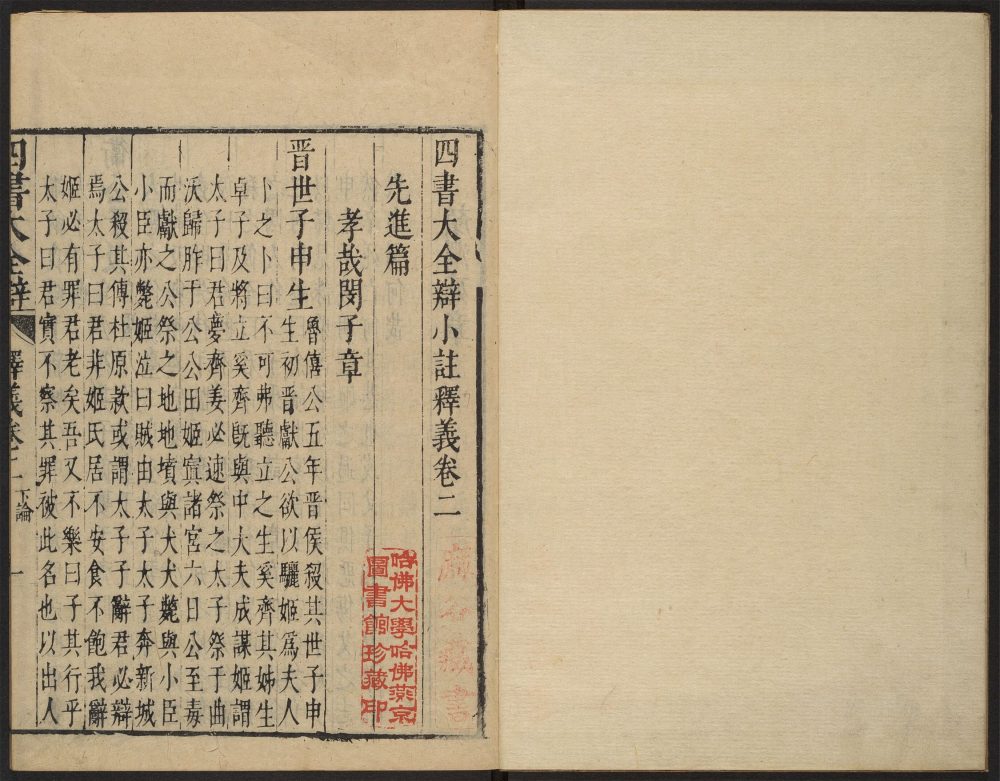 四書大全辯小註釋義卷二
先進篇
孝哉閔子章
晋世子申生
魯僖公五年晋侯殺其世子申
生初晋獻公欲以驪姬爲夫人
卜之卜曰不可弗聽立之生奚齊其娣生
卓子及將立奚齊旣與中大夫成謀姬謂
太子曰君夢齊姜必速祭之太子祭于曲
沃歸胙于公公田姬寘諸宮六日公至毒
而獻之公祭之地地墳與犬犬斃與小臣
小臣亦斃姬泣曰賊由太子太子奔新城
公殺其傅杜原欵或謂太子子辭君必辯
焉太子曰君非姬氏居不安食不飽我辭
姬必有罪君老矣吾又不樂曰子其行乎
太子曰君實不察其罪被此名也以出人
四書大全辯
釋義卷二
下論
一
哈佛大學哈佛燕京
圖書館珍藏印
藏書